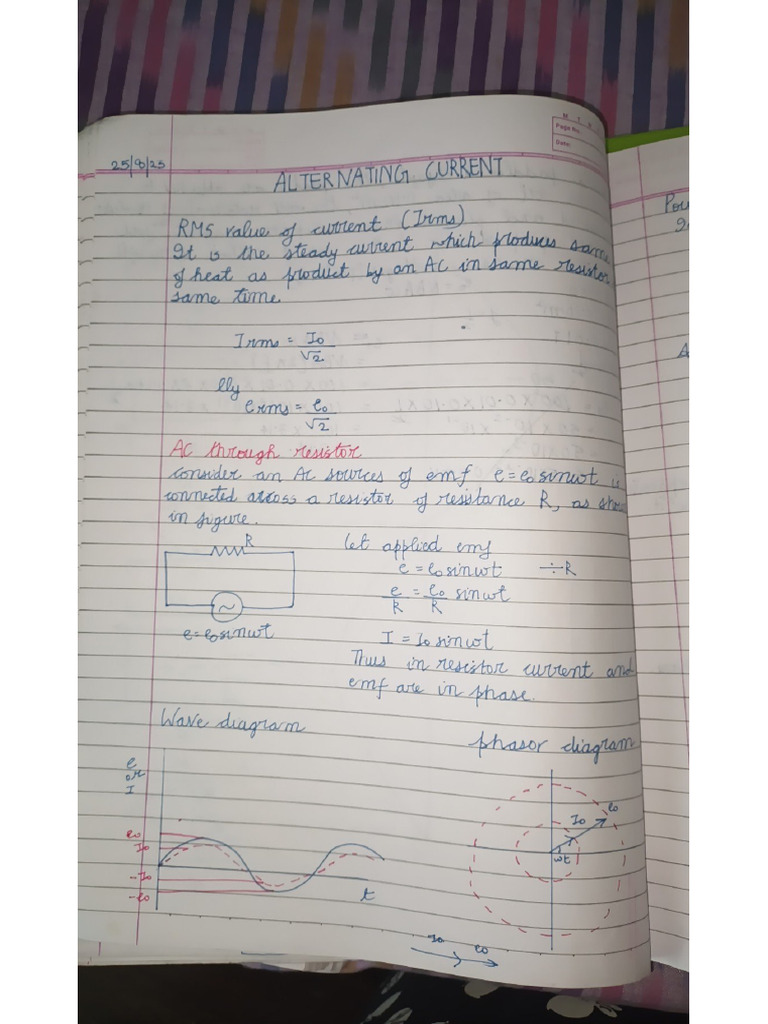 Page No.
Date:
25/8/25
ALTERNATING CURRENT
RMS value of current (Irms)
It is the steady current which produces same
of heat as product by an AC in same resistor
same time
Irms = I0/√2
lly
erms = e0/√2
AC through resistor
consider an AC sources of emf e = e0 sinwt is
connected across a resistor of resistance R, as show
in figure.
R
e = e0 sinwt
Let applied emf
e = e0 sinwt ÷R
e/R = e0/R sinwt
I = I0 sinwt
Thus in resistor current and
emf are in phase.
Wave diagram
phasor diagram
e
or
I
e0
I0
-I0
-e0
t
I0
e0
wt
I0 e0
Pow